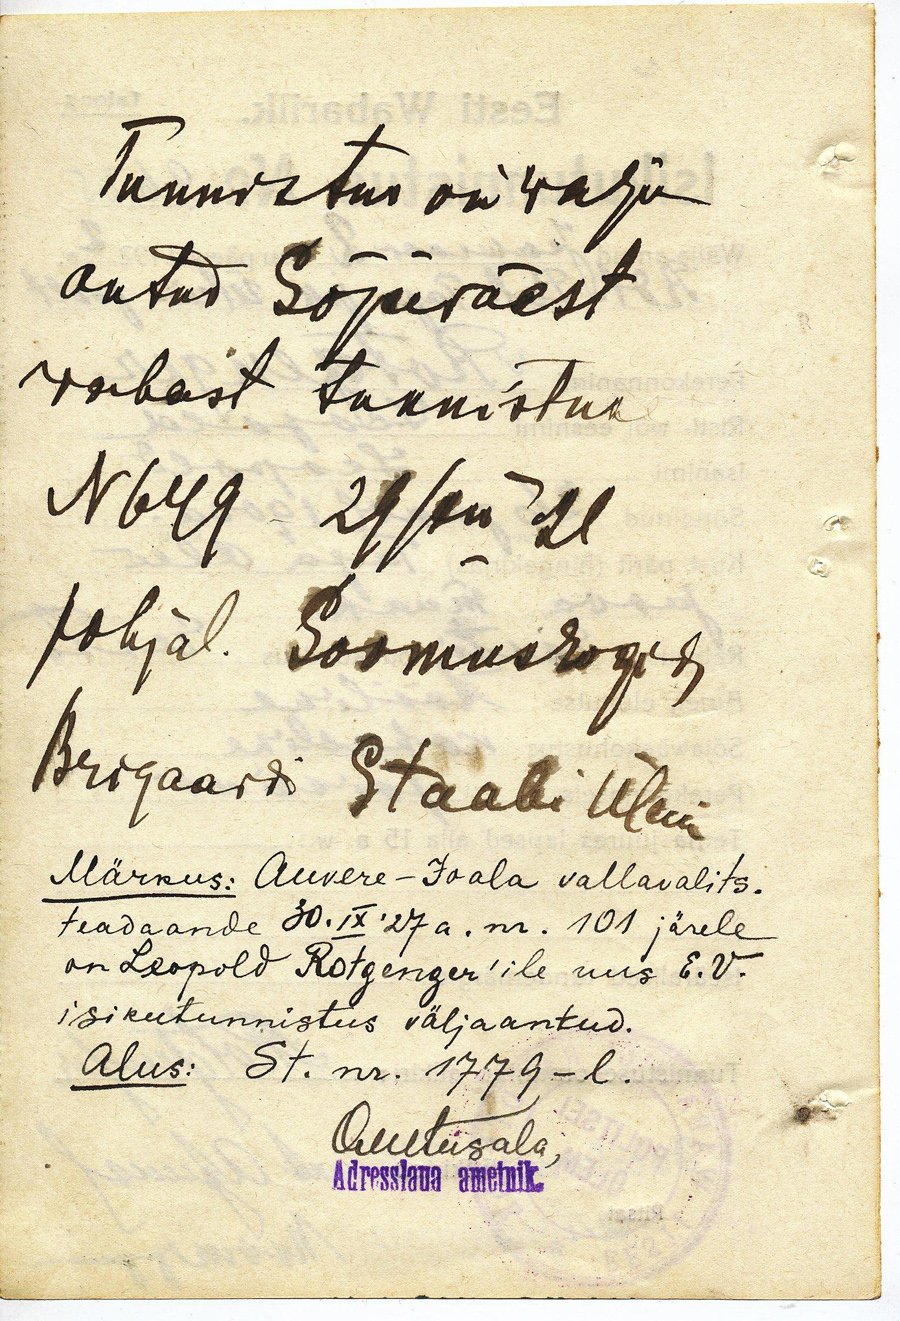 Tunnistus on walja
antud Sõjuväest
wabast tunnistus
N 649 - 29/XII 21
põhjal. Soomusrongid
Brigaardi Staabi Ülem
Märkus: Auvere-Joala vallavalits.
teadaande 30.IX.'27 a. nr. 101 järele
on Leopold Rotgenger'ile uus E.V.
isikutunnistus väljaantud.
Alus: St. nr. 1779-l.
Adresslaua ametnik.